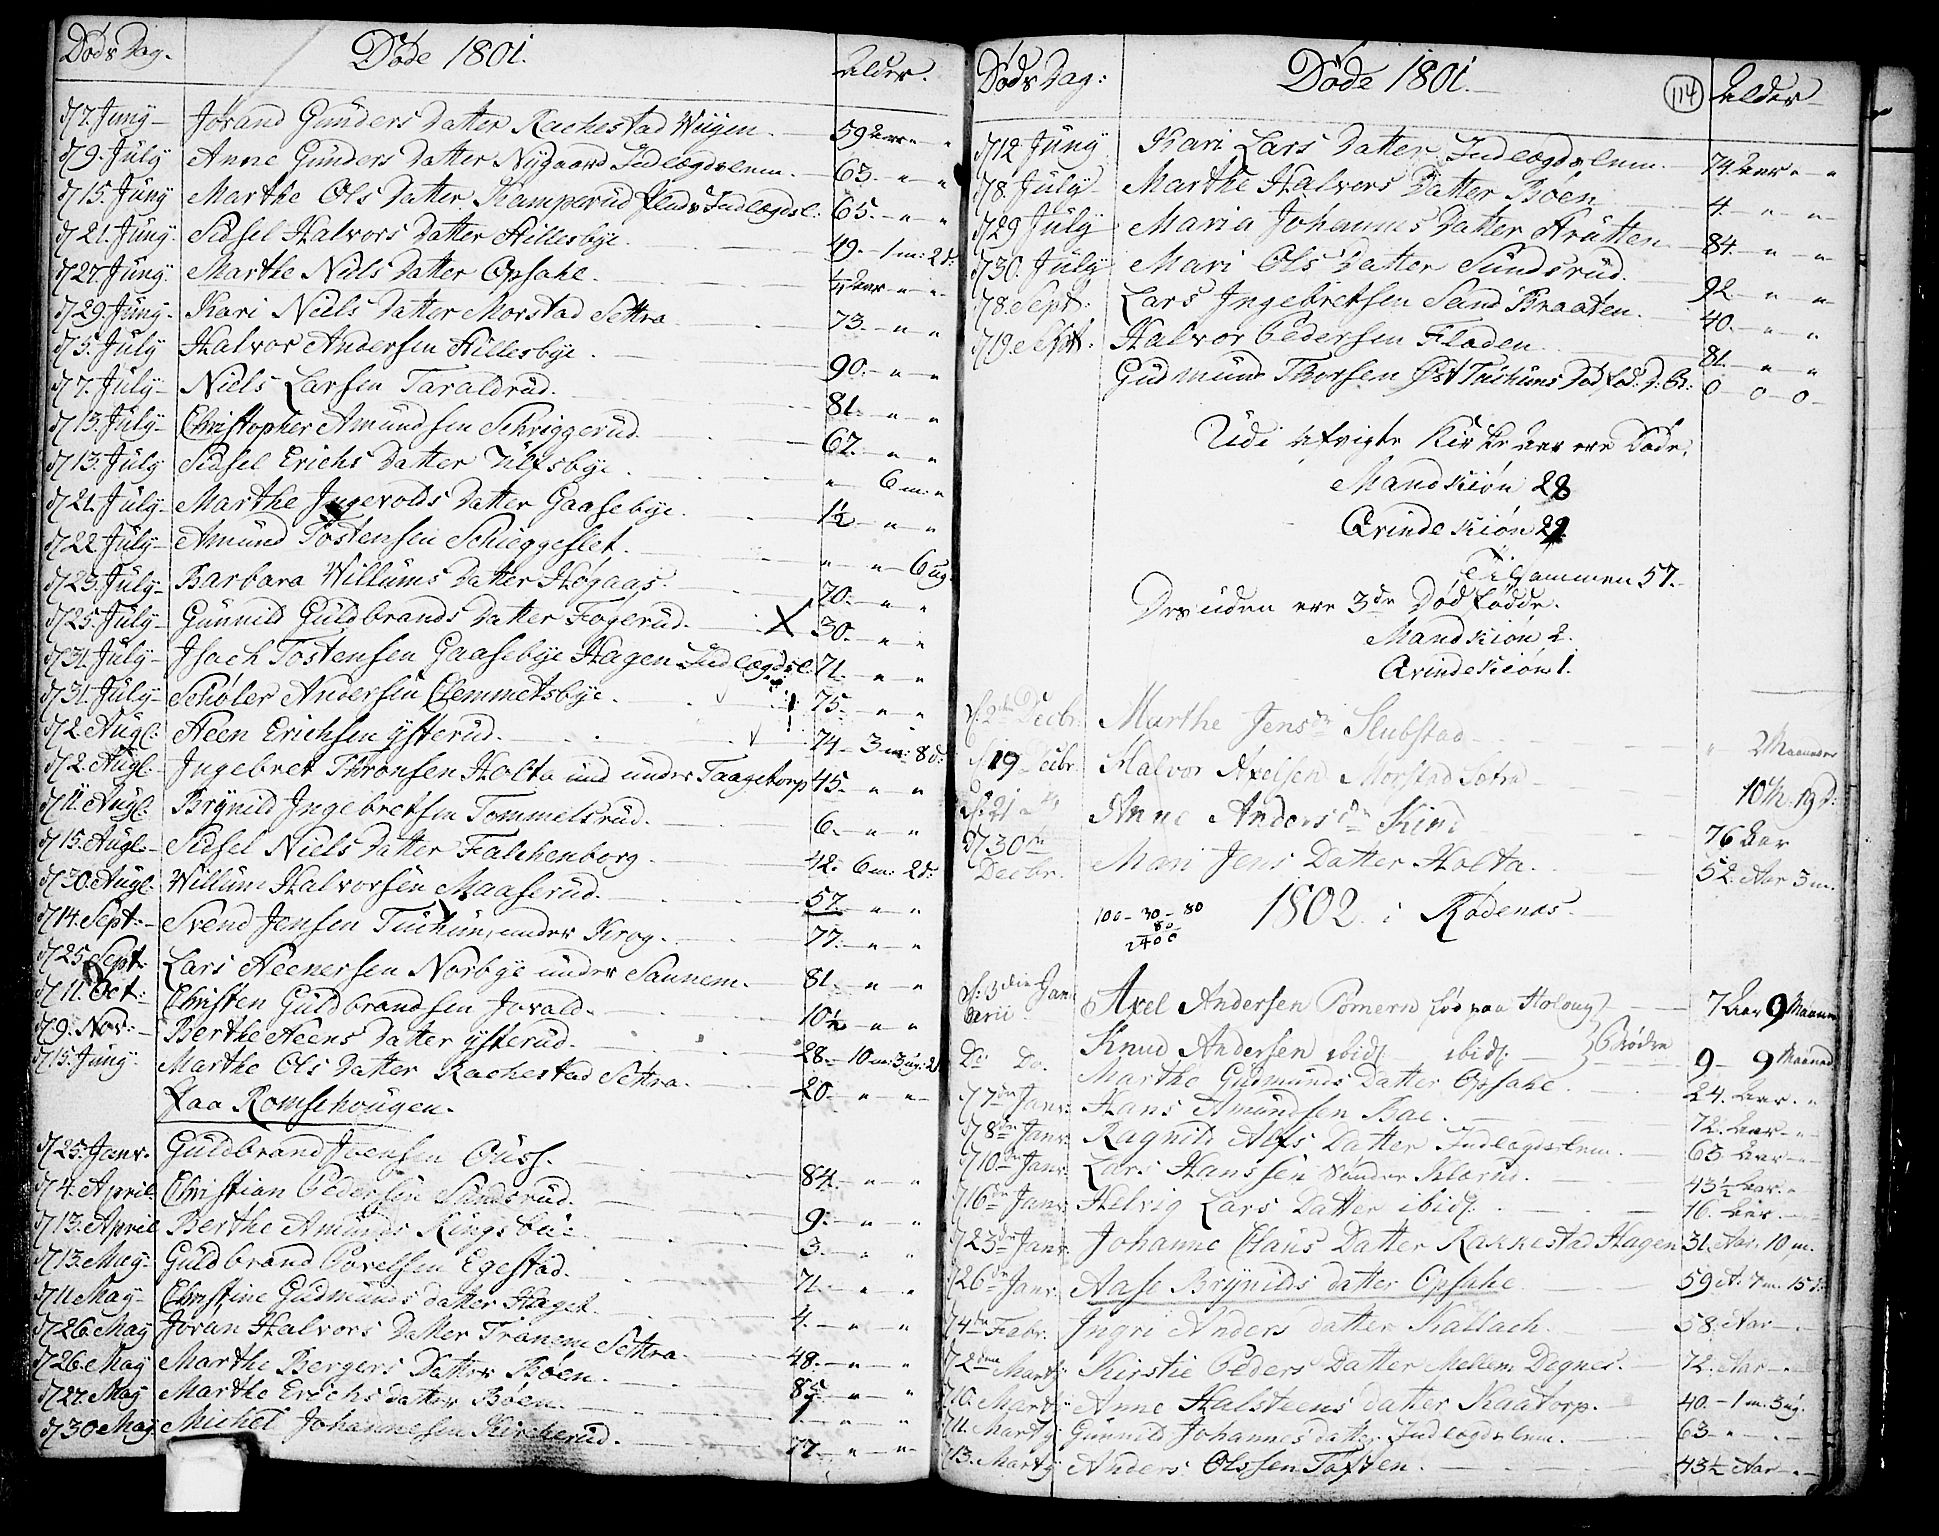 Døds Dag. Døde 1801. Alder.
d 7. Juny Jørand Gunders Datter Rachestad Wiigen. 59 Aar " "
d 9. July Anne Gunders Datter Nygaard Indlægdslem. 63. " "
d 15. Juny Marthe Ols Datter Kamperud Indlægdsl: 65. " "
d 21. Juny Sidsel Halvors Datter Hillesbye. 49. 1 m: 2 d:
d 27. Juny Marthe Niels Datter Opsahe. Aar " "
d 29. Juny Kari Niels Datter Morstad Settra 73. " "
d 5. July Halvor Andersen Hillesbye. 90. " "
d 7. July Niels Larsen Taraldrud. 81. " "
d 13. July Christopher Amundsen Schriggerud. 67. " "
d 13. July Sidsel Erichs Datter Ulfsbye. " 6 m: "
d 21. July Marthe Ingevolds Datter Gaasebye. 1½ " "
d 22 July Amund Tostensen Schieggeslet. " " 6 ug:
d 23. July Barbara Willums Datter Høgaas. 70. " "
d 25. July Gunnild Guldbrands Datter Fogerud. X 30. " "
d 31. July Isach Tostensen Gaasebye Hagen Indlægdsl. 71. " "
d 31. July Schøler Andersen Clemmetsbye. 75. " "
d 2. Augl: Steen Erichsen Ysterud. 74. 3 m: 8 d:
d 2. Augl. Ingebret Thronsen Holta und under Taagetorp 45. " "
d 11. Augl: Brynild Ingebretsen Tommelsrud. 6. " "
d 15. Augl. Sidsel Niels Datter Falchenborg 42. 6 m: 2 d:
d 30. Augl: Willum Halvorsen Maaserud. 57. " "
d 14. Sept: Svend Jensen Tuchun, under Krog. 77. " "
d 25. Sept. Lars Steenersen Norbye under Sannem. 81. " "
d 11. Oct: Christen Guldbrandsen Jovald. 10½ " "
d 9. Nov: Berthe Steens Datter Ysterud. 28. 10 m: 3 ug: 2 d.
d 15. Juny. Marthe Ols Datter Rachestad Settra. 20. " "
paa Romsehougen.
d 25. Janr. Guldbrand Joensen Ous. 84. " "
d 4. April Christian Pedersen Sundsrud. 9. " "
d 13. April Berthe Amunds Kings 3. " "
d 13. May Guldbrand Povelsen Egestad. 71. " "
d 11. May Christine Gudmunds datter Haget. 4. " "
d 26. May Jøran Halvors Datter Tranem Settra. 48. " "
d 26. May Marthe Bergers Datter Bøen. 85. " "
d 27. May Marthe Erichs datter Bøen. " "
d 30 May Michel Johannesen Kircherud. 77. " "
Døds Dag: Døde 1801. 114 Alder
d 12 Juny Kari Lars Datter Indlægdslem. 74. Aar " "
d 8. July Marthe Halvors Datter Bøen 4. " "
d 29 July Maria Johannes Datter Krutten. 84. " "
d 30. July Mari Ols Datter Sundsrud. 92 " "
d 8. Sept: Lars Ingebretsen Sand Braaten. 40. " "
d 19. Sept. Halvor Pedersen Fladen. 81. " "
Gudmund Thorsen Øst Tuchuns Dødfød. D. B: 0 0 0
Udi afvigte Kirke Aar ere Døde.
Mandkiøn 28
Qvindekiøn 29
Tilsammen 57.
Desuden ere 3de Dødfødde.
Mandkiøn 2.
Qvindekiøn 1.
d: 2den Decbr. Marthe Jens Dr Slubstad " 2 Maaneder
d 19 Decbr Halvor Axelsen Morstad Setra 10 M. 19 d:
d: 21 Anne Anders Dr Kind 76 Aar
d 30te Decbr. Mari Jens Datter Holta. 52. Aar 3 m.
100 - 30 - 80
80
2400
1802. i Rødenæs.
d: 3die Januarii Axel Andersen Pomern fød paa Holoug 7 Aar 9 Maaned
Do. Do. Knud Andersen ibid. ibid. Brødre 9 - 9 Maaned
Marthe Gudmunds Datter Opsahe. 24. Aar. "
d 7de Janr: Hans Amundsen Bae. 72. Aar "
d 8de Janr. Ragnild Alfs Datter Indlægdslem. 63 Aar
d 10de Janr. Lars Hanssen under Klærn. 43½ Aar.
d 16de Janr. Helvig Lars Datter ibid. 76. Aar.
d 23de Janr. Johanne Claus Datter Rakkestad Hagen 31. Aar. 10 m.
d 26de Janr. Aase Brynilds datter Opsahe 59 A. 7 m. 15 d.
d 4de Febr. Ingri Anders datter Kallach. 58. Aar
d 2den Marty. Kirstie Peders Datter Mellem Degnes. 72. Aar
d 10. Marty Anne Halsteens datter Kaatorp. 40. 1 m. 3 ug.
d 11. Marty. Gunnild Johannes datter Indlægdslem. 63 "
d 13. Marty Anders Olssen Toften. 43½ Aar